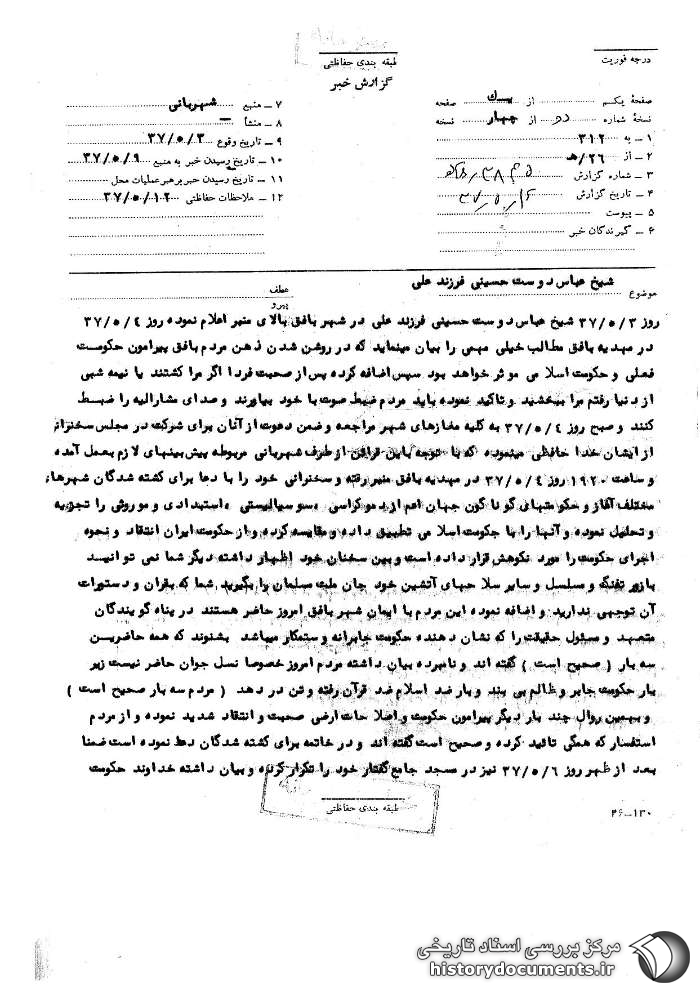 درجه فوریت
طبقه بندی حفاظتی
گزارش خبر
صفحهٔ یکم از یک صفحه
نسخهٔ شماره دو از چهار نسخه
۱ – به ۳۱۲
۲ – از ۲۶/هـ
۳ – شماره گزارش
۴ – تاریخ گزارش
۵ – پیوست
۶ – گیرندگان خبر
۷ – منبع شهربانی
۸ – منشأ –
۹ – تاریخ وقوع ۳۷/۵/۳
۱۰ – تاریخ رسیدن خبر به منبع ۳۷/۵/۹
۱۱ – تاریخ رسیدن خبر برهبر عملیات محل
۱۲ – ملاحظات حفاظتی ۳۷/۵/۱۲
موضوع شیخ عباس دوست حسینی فرزند علی
عطف
پیرو
روز ۳۷/۵/۳ شیخ عباس دوست حسینی فرزند علی در شهر بافق بالای منبر اعلام نموده روز ۳۷/۵/۴
در مهدیه بافق مطالب خیلی مهمی را بیان مینماید که در روشن شدن ذهن مردم بافق پیرامون حکومت
فعلی و حکومت اسلامی موثر خواهد بود سپس اضافه کرده پس از صحبت فردا اگر مرا کشتند یا نیمه شبی
از دنیا رفتم مرا ببخشید و تاکید نموده باید مردم ضبط صوت با خود بیاورند و صدای مشارالیه را ضبط
کنند و صبح روز ۳۷/۵/۴ به کلیه مغازهای شهر مراجعه و ضمن دعوت از آنان برای شرکت در مجلس سخنرانی
از ایشان خدا حافظی مینموده که با توجه باین قرائن از طرف شهربانی مربوطه پیش بینیهای لازم بعمل آمده
و ساعت ۱۹۲۰ روز ۳۷/۵/۴ در مهدیه بافق منبر رفته و سخنرانی خود را با دعا برای کشته شدگان شهرهای
مختلف آغاز و حکومتهای گوناگون جهان اعم از دموکراسی ، سوسیالیستی ، استبدادی و موروثی را تجزیه
و تحلیل نموده و آنها را با حکومت اسلامی تطبیق داده و مقایسه کرده و از حکومت ایران انتقاد و نحوه
اجرای حکومت را مورد نکوهش قرار داده است و بین سخنان خود اظهار داشته دیگر شما نمی توانید
بازور تفنگ و مسلسل و سایر سلاحهای آتشین خود جان ملت مسلمان را بگیرید شما که بقران و دستورات
آن توجهی ندارید و اضافه نموده این مردم با ایمان شهر بافق امروز حاضر هستند در پناه گویندگان
متعهد و مسئول حقیقت را که نشان دهنده حکومت جابرانه و ستمکار میباشد بشنوند که همه حاضرین
سه بار ( صحیح است ) گفته اند و نامبرده بیان داشته مردم امروز خصوصا نسل جوان حاضر نیست زیر
بار حکومت جابر و ظالم بی بند و بار ضد اسلام ضد قرآن رفته و تن در دهد ( مردم سه بار صحیح است )
و بهمین روال چند بار دیگر پیرامون حکومت و اصلاحات ارضی صحبت و انتقاد شدید نموده و از مردم
استفسار که همگی تائید کرده و صحیح است گفته اند و در خاتمه برای کشته شدگان دعا نموده است ضمنا
بعد از ظهر روز ۳۷/۵/۶ نیز در مسجد جامع گفتار خود را تکرار کرده و بیان داشته خداوند حکومت
طبقه بندی حفاظتی
۳۶–۱۳۰
مرکز بررسی اسناد تاریخی
historydocuments.ir